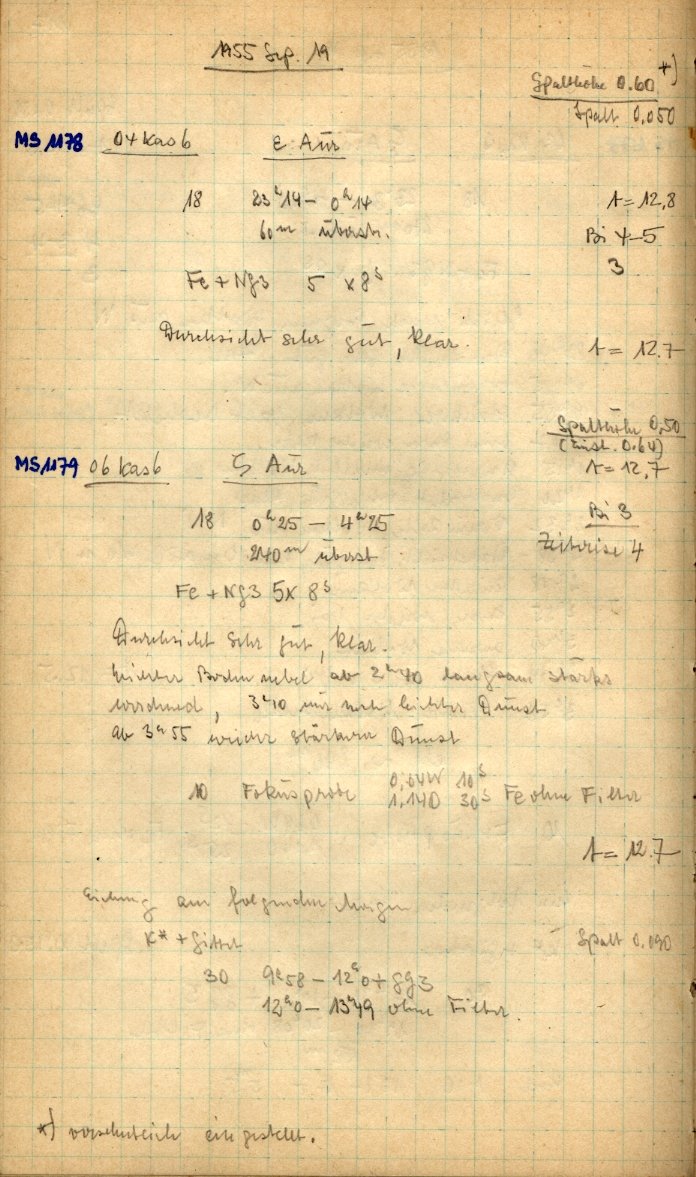 1955 Sep. 19
Spalthöhe 0.60 +)
Spalt 0,050
MS 1178 04 Kas 6 ε Aur
18 23h14 – 0h14 t = 12,8
60m überst. Bi 4–5
3
Fe + Ng3 5 x 8s
Durchsicht sehr gut, klar. t = 12.7
Spalthöhe 0,50
(Einst. 0.64)
MS 1179 06 Kas 6 ζ Aur t = 12,7
18 0h25 – 4h25 Bi 3
240m überst Zeitweise 4
Fe + Ng3 5x 8s
Durchsicht sehr gut, klar.
Leichter Bodennebel ab 2h40 langsam stärker
werdend, 3h10 nur noch leichter Dunst
ab 3h55 wieder stärkerer Dunst
10 Fokusprobe 10s
1,140 30s Fe ohne Filter
t = 12.7
Eichung am folgenden Morgen
K* + Gitter Spalt 0,090
30 9h58 – 12h0 + gg3
12h0 – 13h49 ohne Filter.
*) versehentlich eingestellt.